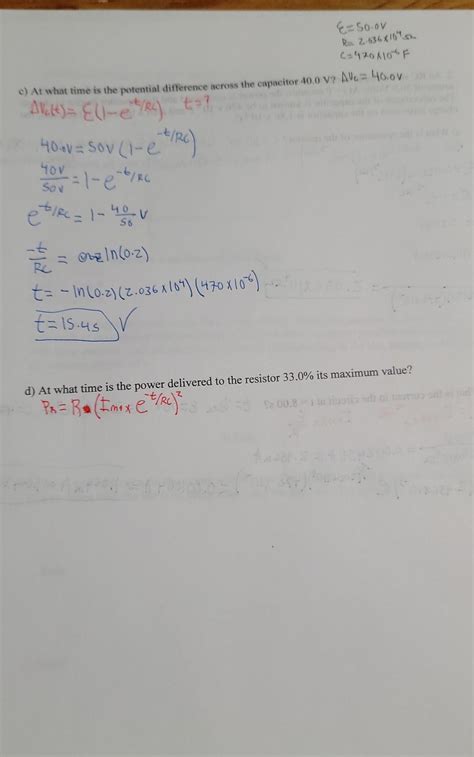 ε=50.0V
R= 2.036x10⁴Ω
C=470x10⁻⁶ F
c) At what time is the potential difference across the capacitor 40.0 V? ΔVc=40.0V
ΔVc(t)= ε(1-e^-t/RC) t=?
40.0V=50V(1-e^-t/RC)
40V/50V=1-e^-t/RC
e^-t/RC=1-40/50 V
-t/RC = ln(0.2)
t=-ln(0.2)(2.036x10⁴)(470x10⁻⁶)
t=15.4s √
d) At what time is the power delivered to the resistor 33.0% its maximum value?
PR=R(Imax e^-t/RC)²